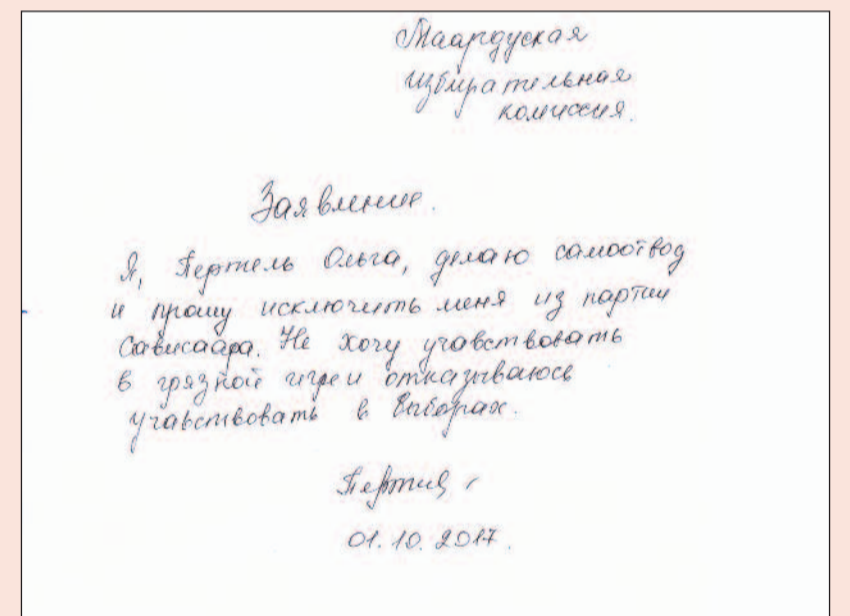 Маардуская
избирательная
комиссия.
Заявление.
Я, Пертель Ольга, делаю самоотвод
и прошу исключить меня из партии
Сависаара. Не хочу учавствовать
в грязной игре и отказываюсь
учавствовать в выборах.
01.10.2017.